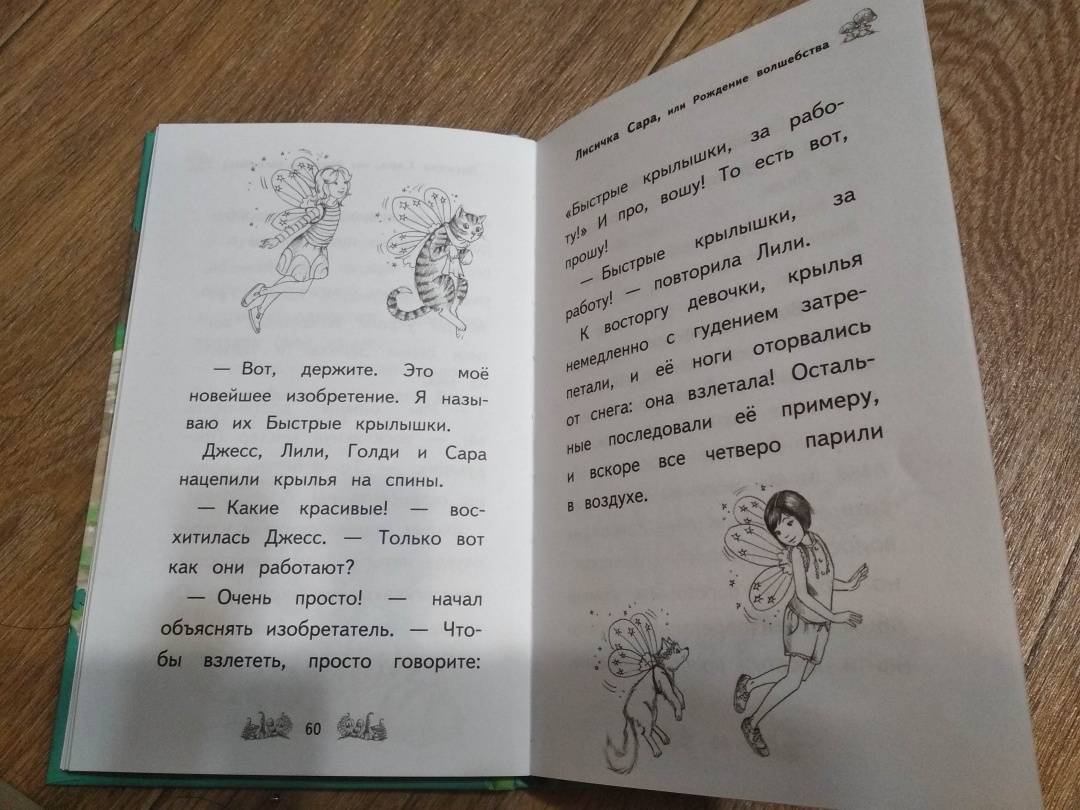 — Вот, держите. Это моё
новейшее изобретение. Я назы-
ваю их Быстрые крылышки.
Джесс, Лили, Голди и Сара
нацепили крылья на спины.
— Какие красивые! — вос-
хитилась Джесс. — Только вот
как они работают?
— Очень просто! — начал
объяснять изобретатель. — Что-
бы взлететь, просто говорите:
60
Лисичка Сара, или Рождение волшебства
«Быстрые крылышки, за рабо-
ту!» И про, вошу! То есть вот,
прошу!
— Быстрые крылышки, за
работу! — повторила Лили.
К восторгу девочки, крылья
немедленно с гудением затре-
петали, и её ноги оторвались
от снега: она взлетала! Осталь-
ные последовали её примеру,
и вскоре все четверо парили
в воздухе.